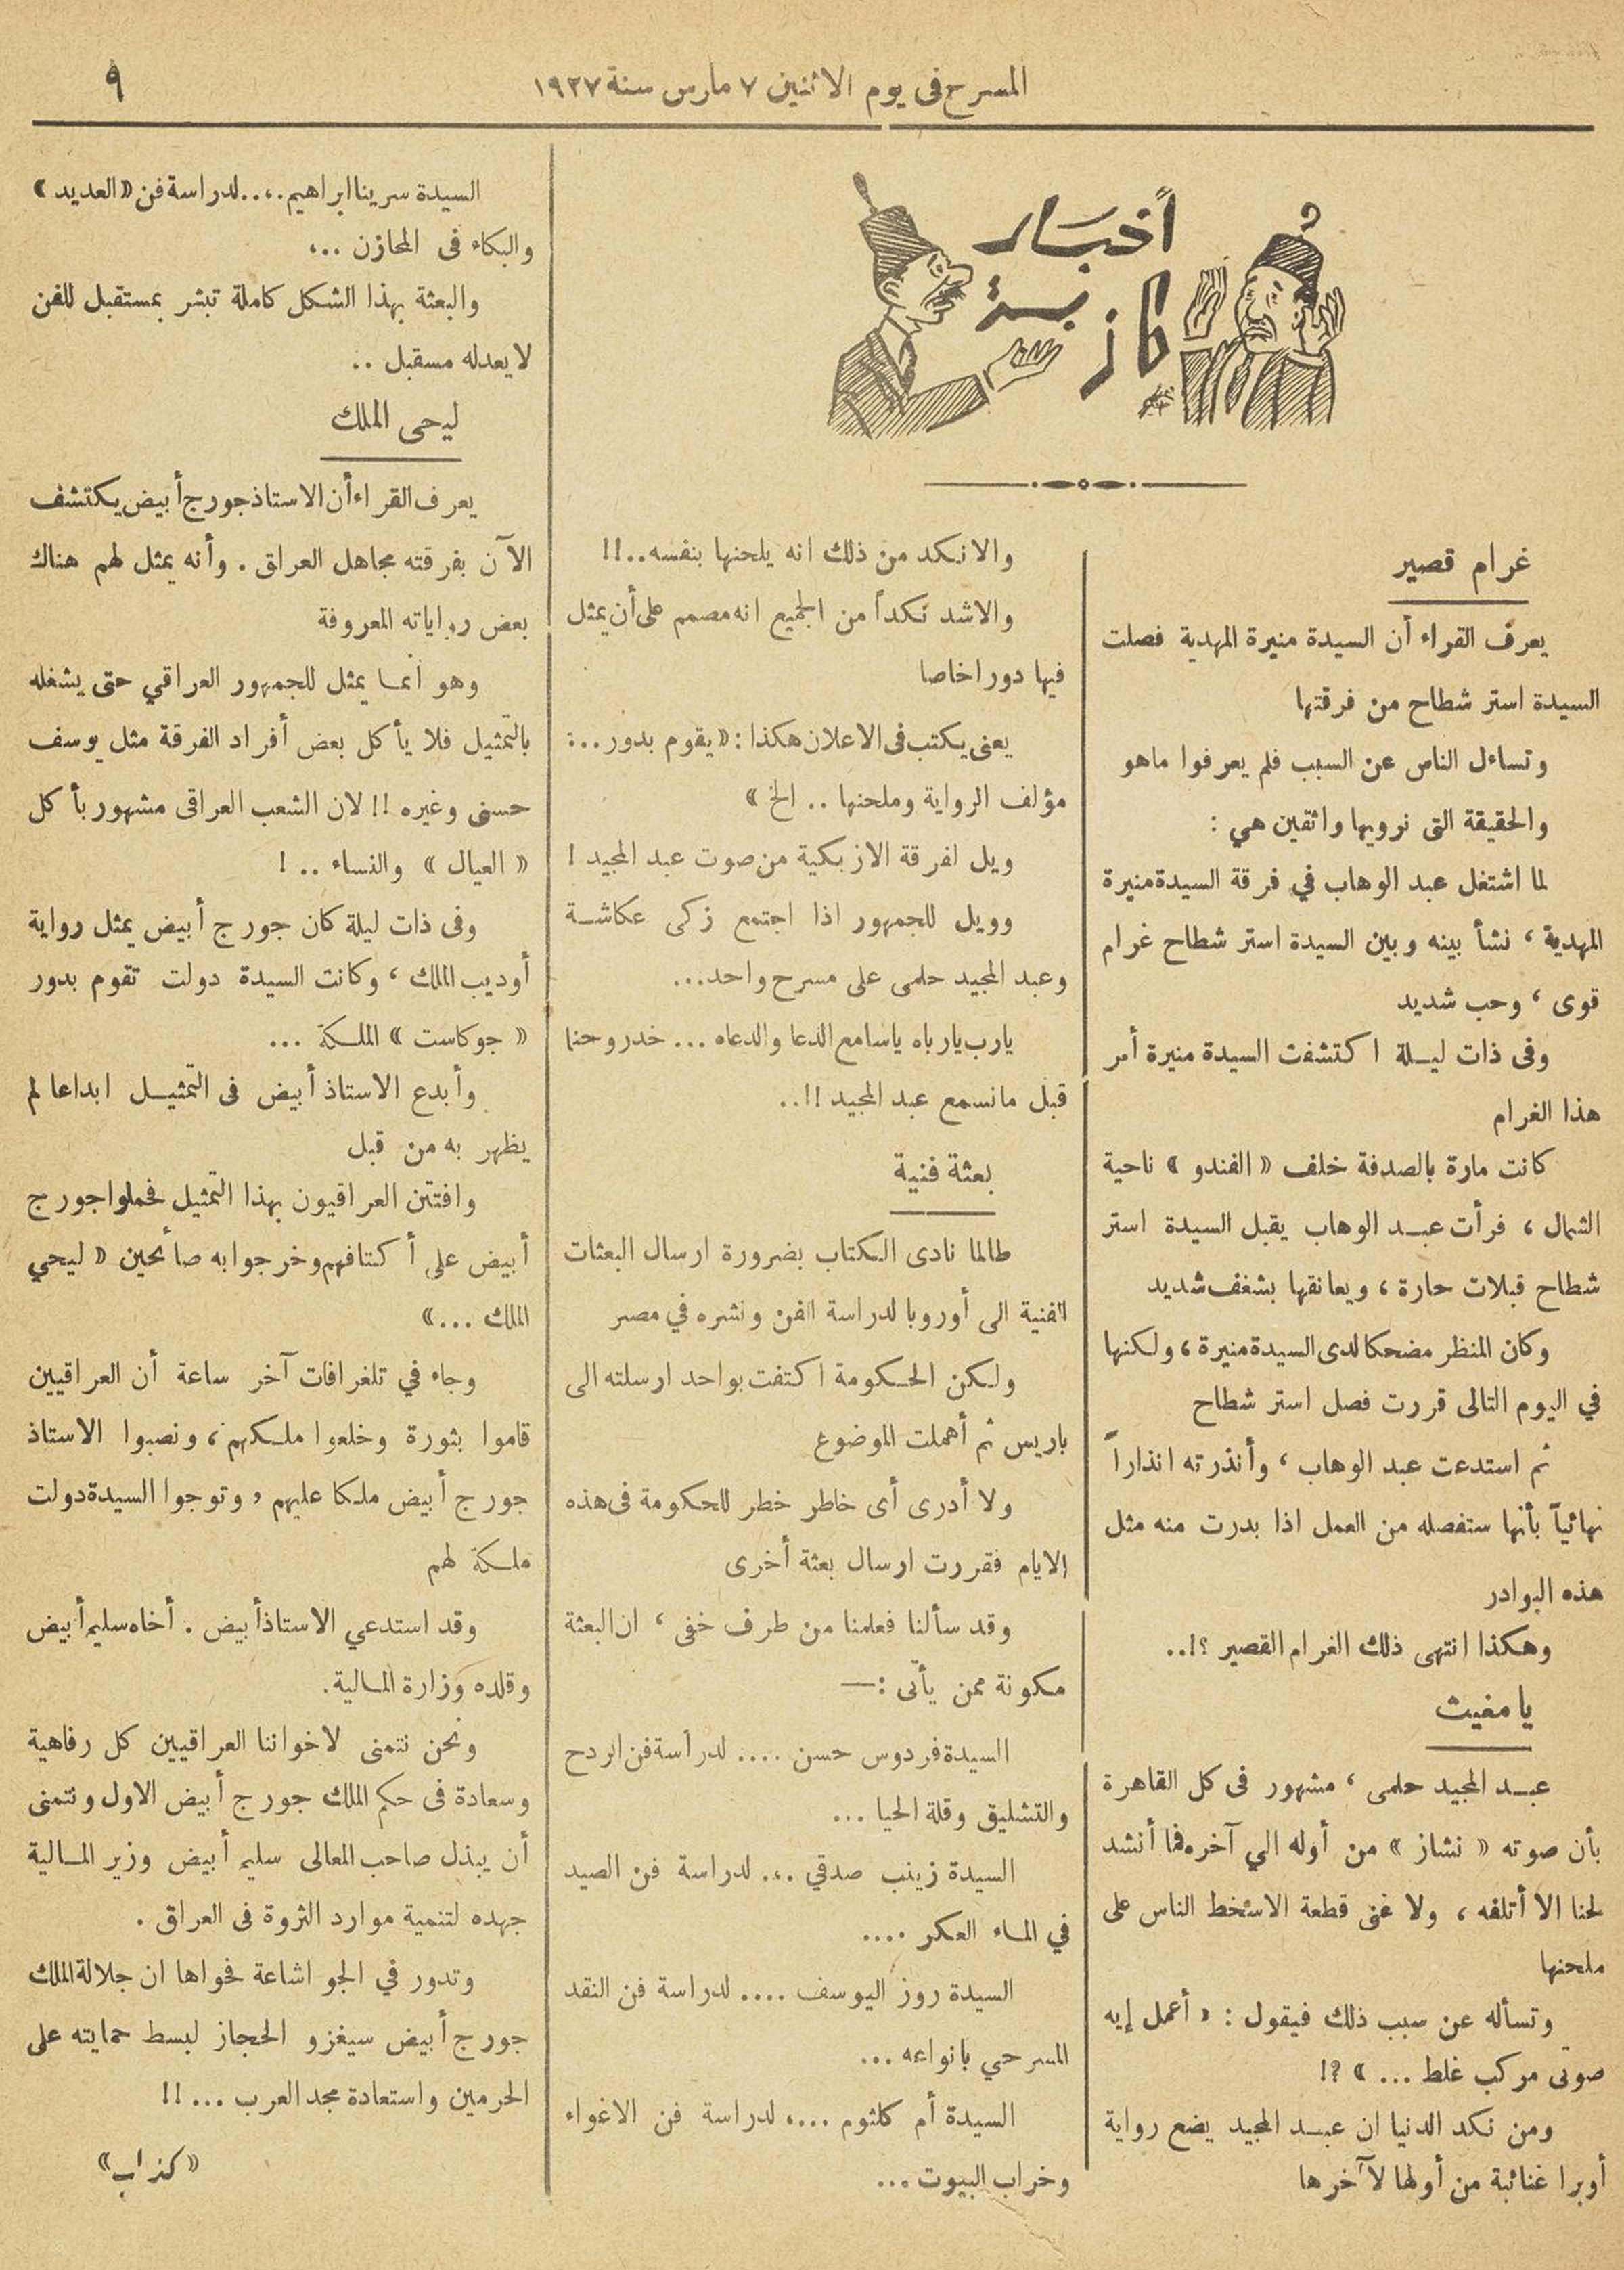 المسرح فى يوم الاثنين ٧ مارس سنة ١٩٢٧
٩
أخبار
كازبة
غرام قصير
يعرف القراء أن السيدة منيرة المهدية فصلت
السيدة استر شطاح من فرقتها
وتساءل الناس عن السبب فلم يعرفوا ماهو
والحقيقة التى نرويها واثقين هي :
لما اشتغل عبد الوهاب في فرقة السيدة منيرة
المهدية ، نشأ بينه وبين السيدة استر شطاح غرام
قوى ، وحب شديد
وفى ذات ليلة اكتشفت السيدة منيرة أمر
هذا الغرام
كانت مارة بالصدفة خلف « الفندو » ناحية
الشمال ، فرأت عبد الوهاب يقبل السيدة استر
شطاح قبلات حارة ، ويعانقها بشغف شديد
وكان المنظر مضحكا لدى السيدة منيرة ، ولكنها
في اليوم التالى قررت فصل استر شطاح
ثم استدعت عبد الوهاب ، وأنذرته انذاراً
نهائياً بأنها ستفصله من العمل اذا بدرت منه مثل
هذه البوادر
وهكذا انتهى ذلك الغرام القصير ؟!..
يا مغيث
عبد المجيد حلمى ، مشهور فى كل القاهرة
بأن صوته « نشاز » من أوله الي آخره فما أنشد
لحنا الا أتلفه ، ولا غنى قطعة الا سخط الناس على
ملحنها
وتسأله عن سبب ذلك فيقول : « أعمل إيه
صوتى مركب غلط ... » ؟!
ومن نكد الدنيا ان عبد المجيد يضع رواية
أوبرا غنائية من أولها لآخرها
والانكد من ذلك انه يلحنها بنفسه..!!
والاشد نكداً من الجميع انه مصمم على أن يمثل
فيها دورا خاصا
يعنى يكتب فى الاعلان هكذا : « يقوم بدور ...:
مؤلف الرواية وملحنها .. الخ »
ويل لفرقة الازبكية من صوت عبد المجيد !
وويل للجمهور اذا اجتمع زكى عكاشة
وعبد المجيد حلمى على مسرح واحد...
يارب يارباه ياسامع الدعا والدعاه ... خد روحنا
قبل مانسمع عبد المجيد !!..
بعثة فنية
طالما نادى الكتاب بضرورة ارسال البعثات
الفنية الى أوروبا لدراسة الفن ونشره في مصر
ولكن الحكومة اكتفت بواحد ارسلته الى
باريس ثم أهملت الموضوع
ولا أدرى أى خاطر خطر للحكومة فى هذه
الايام فقررت ارسال بعثة أخرى
وقد سألنا فعلمنا من طرف خفى ، ان البعثة
مكونة ممن يأتى :—
السيدة فردوس حسن .... لدراسة فن الردح
والتشليق وقلة الحيا ...
السيدة زينب صدقي ... لدراسة فن الصيد
في الماء العكر ....
السيدة روز اليوسف .... لدراسة فن النقد
المسرحي بانواعه ...
السيدة أم كلثوم ...، لدراسة فن الاغواء
وخراب البيوت ...
السيدة سرينا ابراهيم.... لدراسة فن « العديد »
والبكاء فى المحازن ..،
والبعثة بهذا الشكل كاملة تبشر بمستقبل للفن
لا يعدله مسقبل ..
ليحى الملك
يعرف القراء أن الاستاذ جورج أبيض يكتشف
الآن بفرقته مجاهل العراق . وأنه يمثل لهم هناك
بعض رواياته المعروفة
وهو انما يمثل للجمهور العراقي حتى يشغله
بالتمثيل فلا يأكل بعض أفراد الفرقة مثل يوسف
حسنى وغيره !! لان الشعب العراقى مشهور بأكل
« العيال » والنساء .. !
وفى ذات ليلة كان جورج أبيض يمثل رواية
أوديب الملك ، وكانت السيدة دولت تقوم بدور
« جوكاست » الملكة ...
وأبدع الاستاذ أبيض فى التمثيل ابداعا لم
يظهر به من قبل
وافتتن العراقيون بهذا التمثيل فحملوا جورج
أبيض على أكتافهم وخرجوا به صائحين « ليحي
الملك ... »
وجاء في تلغرافات آخر ساعة أن العراقيين
قاموا بثورة وخلعوا ملكهم ، ونصبوا الاستاذ
جورج أبيض ملكا عليهم , وتوجوا السيدة دولت
ملكة لهم
وقد استدعي الاستاذ أبيض . أخاه سليم أبيض
وقلده وزارة المالية.
ونحن نتمنى لاخواننا العراقيين كل رفاهية
وسعادة فى حكم الملك جورج أبيض الاول ونتمنى
أن يبذل صاحب المعالى سليم أبيض وزير المالية
جهده لتنمية موارد الثروة فى العراق .
وتدور في الجو اشاعة فحواها ان جلالة الملك
جورج أبيض سيغزو الحجاز لبسط حمايته على
الحرمين واستعادة مجد العرب ... !!
« كذاب »